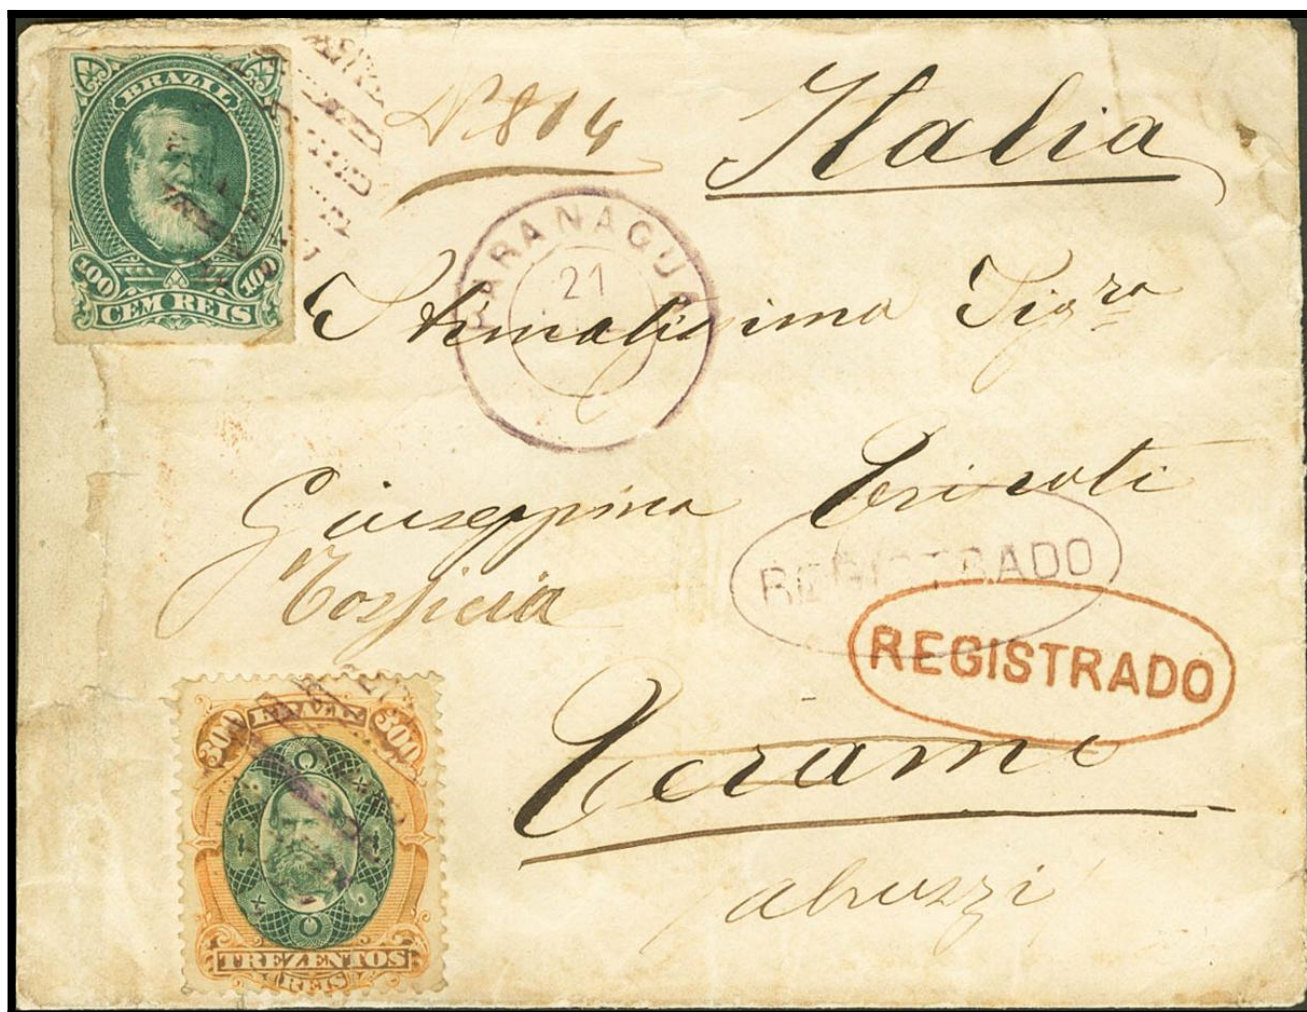 BRAZIL
100 100
CEM REIS
N 814
Italia
PARANAGUA
21
Stimatissima Sigra
Giuseppina
Tossicia
REGISTRADO
REGISTRADO
Teramo
Abruzzi
300 300
TREZENTOS
REIS